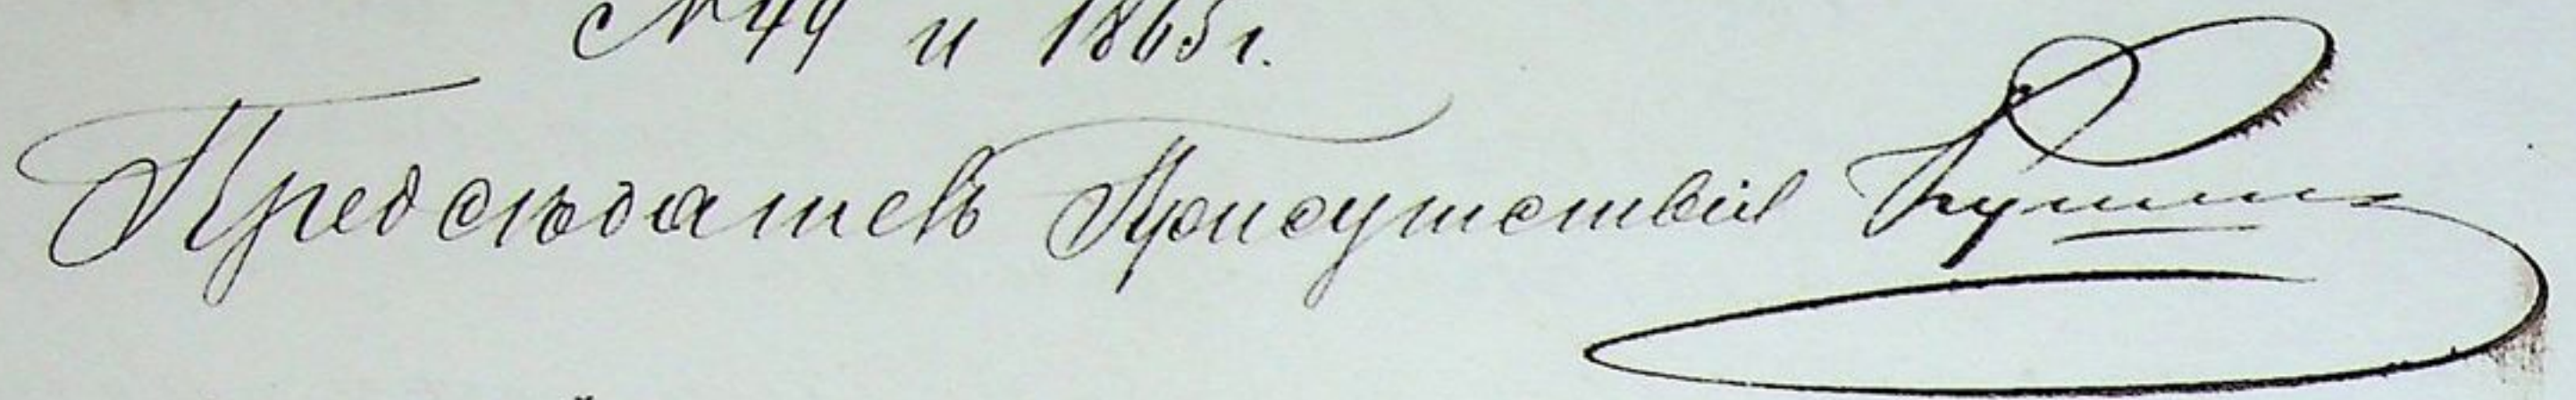 № 44 и 1865 г.
Предсѣдатель Присутствія